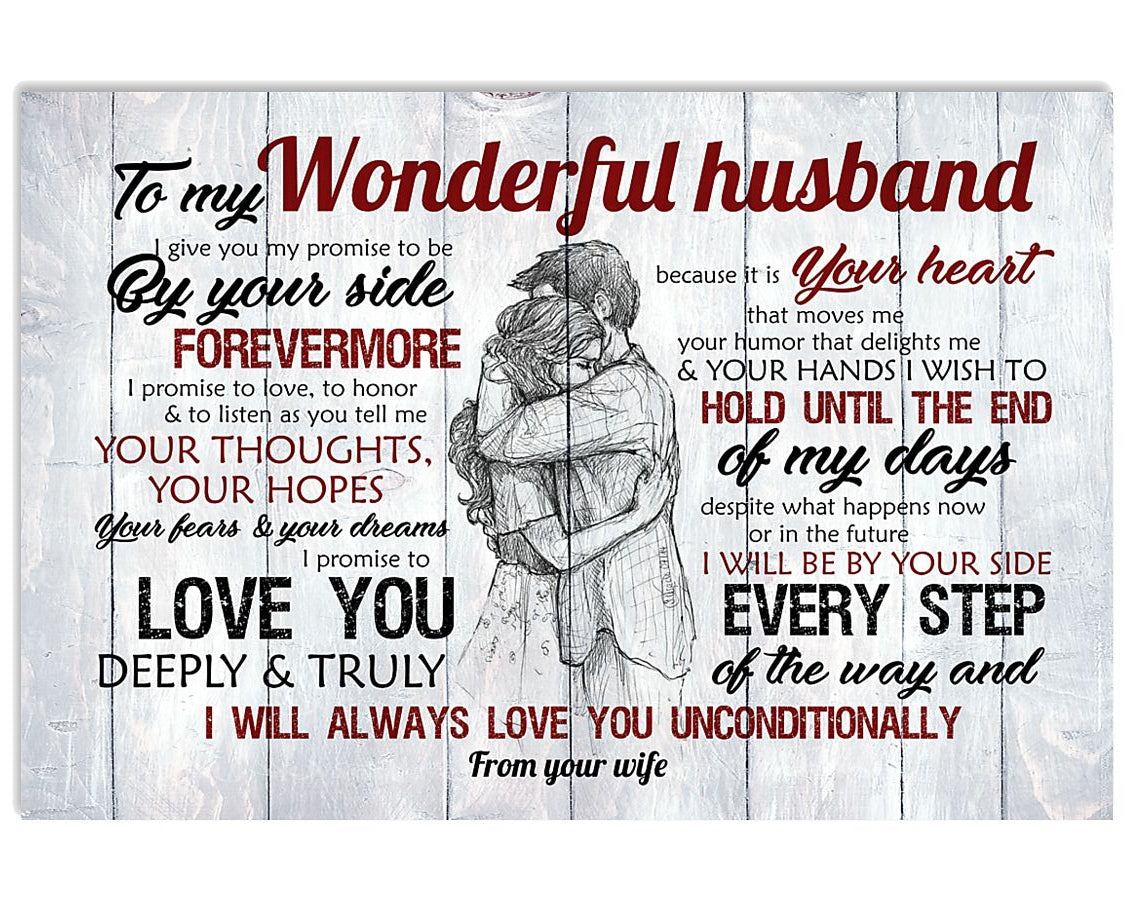 To my Wonderful husband
I give you my promise to be
By your side
FOREVERMORE
I promise to love, to honor
& to listen as you tell me
YOUR THOUGHTS,
YOUR HOPES
Your fears & your dreams
I promise to
LOVE YOU
DEEPLY & TRULY
because it is Your heart
that moves me
your humor that delights me
& YOUR HANDS I WISH TO
HOLD UNTIL THE END
of my days
despite what happens now
or in the future
I WILL BE BY YOUR SIDE
EVERY STEP
of the way and
I WILL ALWAYS LOVE YOU UNCONDITIONALLY
From your wife